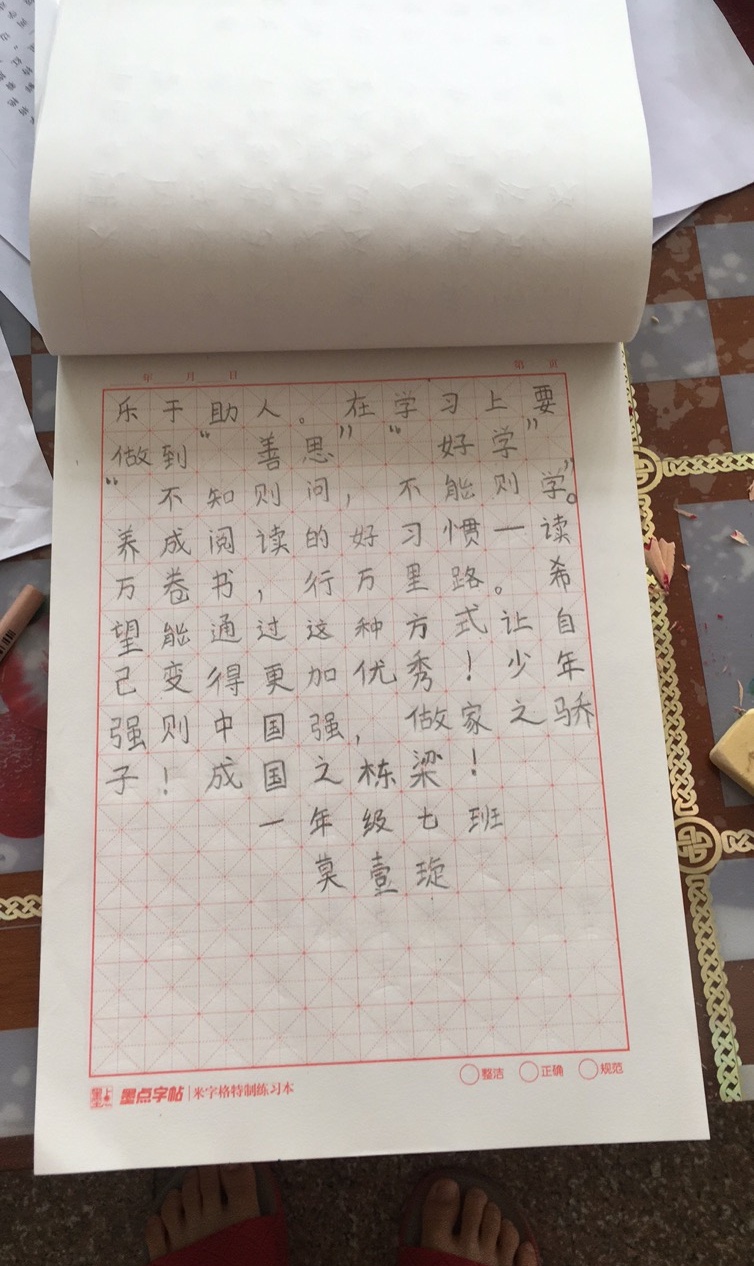 年 月 日 第 页
乐于助人。在学习上要
做到“善思”“好学”
“不知则问，不能则学”。
养成阅读的好习惯一读
万卷书，行万里路。希
望能通过这种方式让自
己变得更加优秀！少年
强则中国强，做家之骄
子！成国之栋梁！
一年级七班
莫壹琁
墨点字帖 米字格特制练习本
整洁 正确 规范